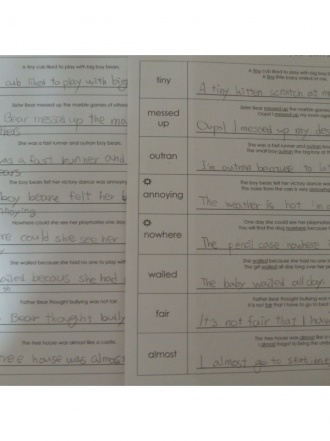 A tiny cub liked to play with big boy bears.
cub liked to play with big
Sister Bear messed up the marble games of others
Bear messed up the ma
She was a fast runner and outran boy bears.
was a fast runner and
bears
The boy bears felt her victory dance was annoying.
boy beare felt her
annoying
Nowhere could she see her playmates one day.
re could she see her
She wailed because she had no one to play with.
ailed becaus she had
Father Bear thought bullying was not fair.
Bear thought bully
The tree house was almost like a castle.
tree house was almost
A tiny cub liked to play with big boy bears.
A tiny little baby
tiny
A tiny kitten scratch at me
Sister Bear messed up the marble games of others
messed
up
Oops! I messed up my des
She was a fast runner and outran boy bears.
The small boy outran the big
outran
I'm outran because to lat
The boy bears felt her victory dance was annoying.
The noise from the cars is very annoying.
annoying
The weather is hot
One day she could see her playmates
You will find this dog nowhere
nowhere
The pencil case nowhere
She wailed because she had no one to
The girl wailed all day long
wailed
The baby wailed all days
Father Bear thought bullying was not fair.
It is not fair that I have to go to bed
fair
It's not fair that I hav
The tree house was almost like
I almost forgot to bring
almost
I almost go to